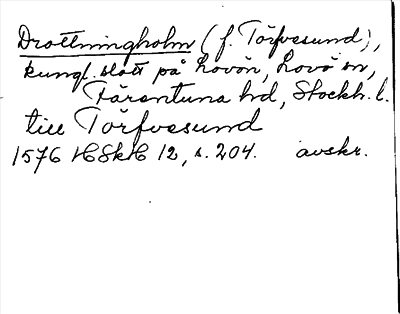 Drottningholm (f. Törfvesund),
kungl. slott på Lovön, Lovö sn,
Färentuna hd, Stockh. l.
till Torfvesund
1576 HSkH 12, s. 204. avskr.